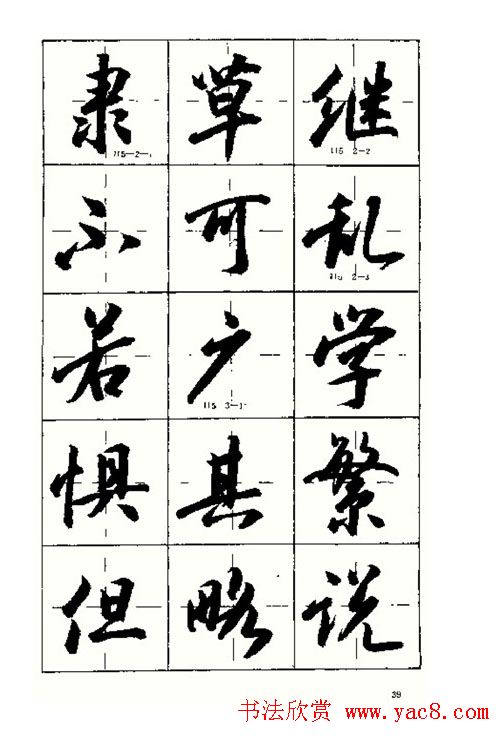 隶草继
115-2-1 115 2-2
不可乱
115 2-3
若广学
115 3-1
惧其繁
但略说
39
书法欣赏 www.yac8.com